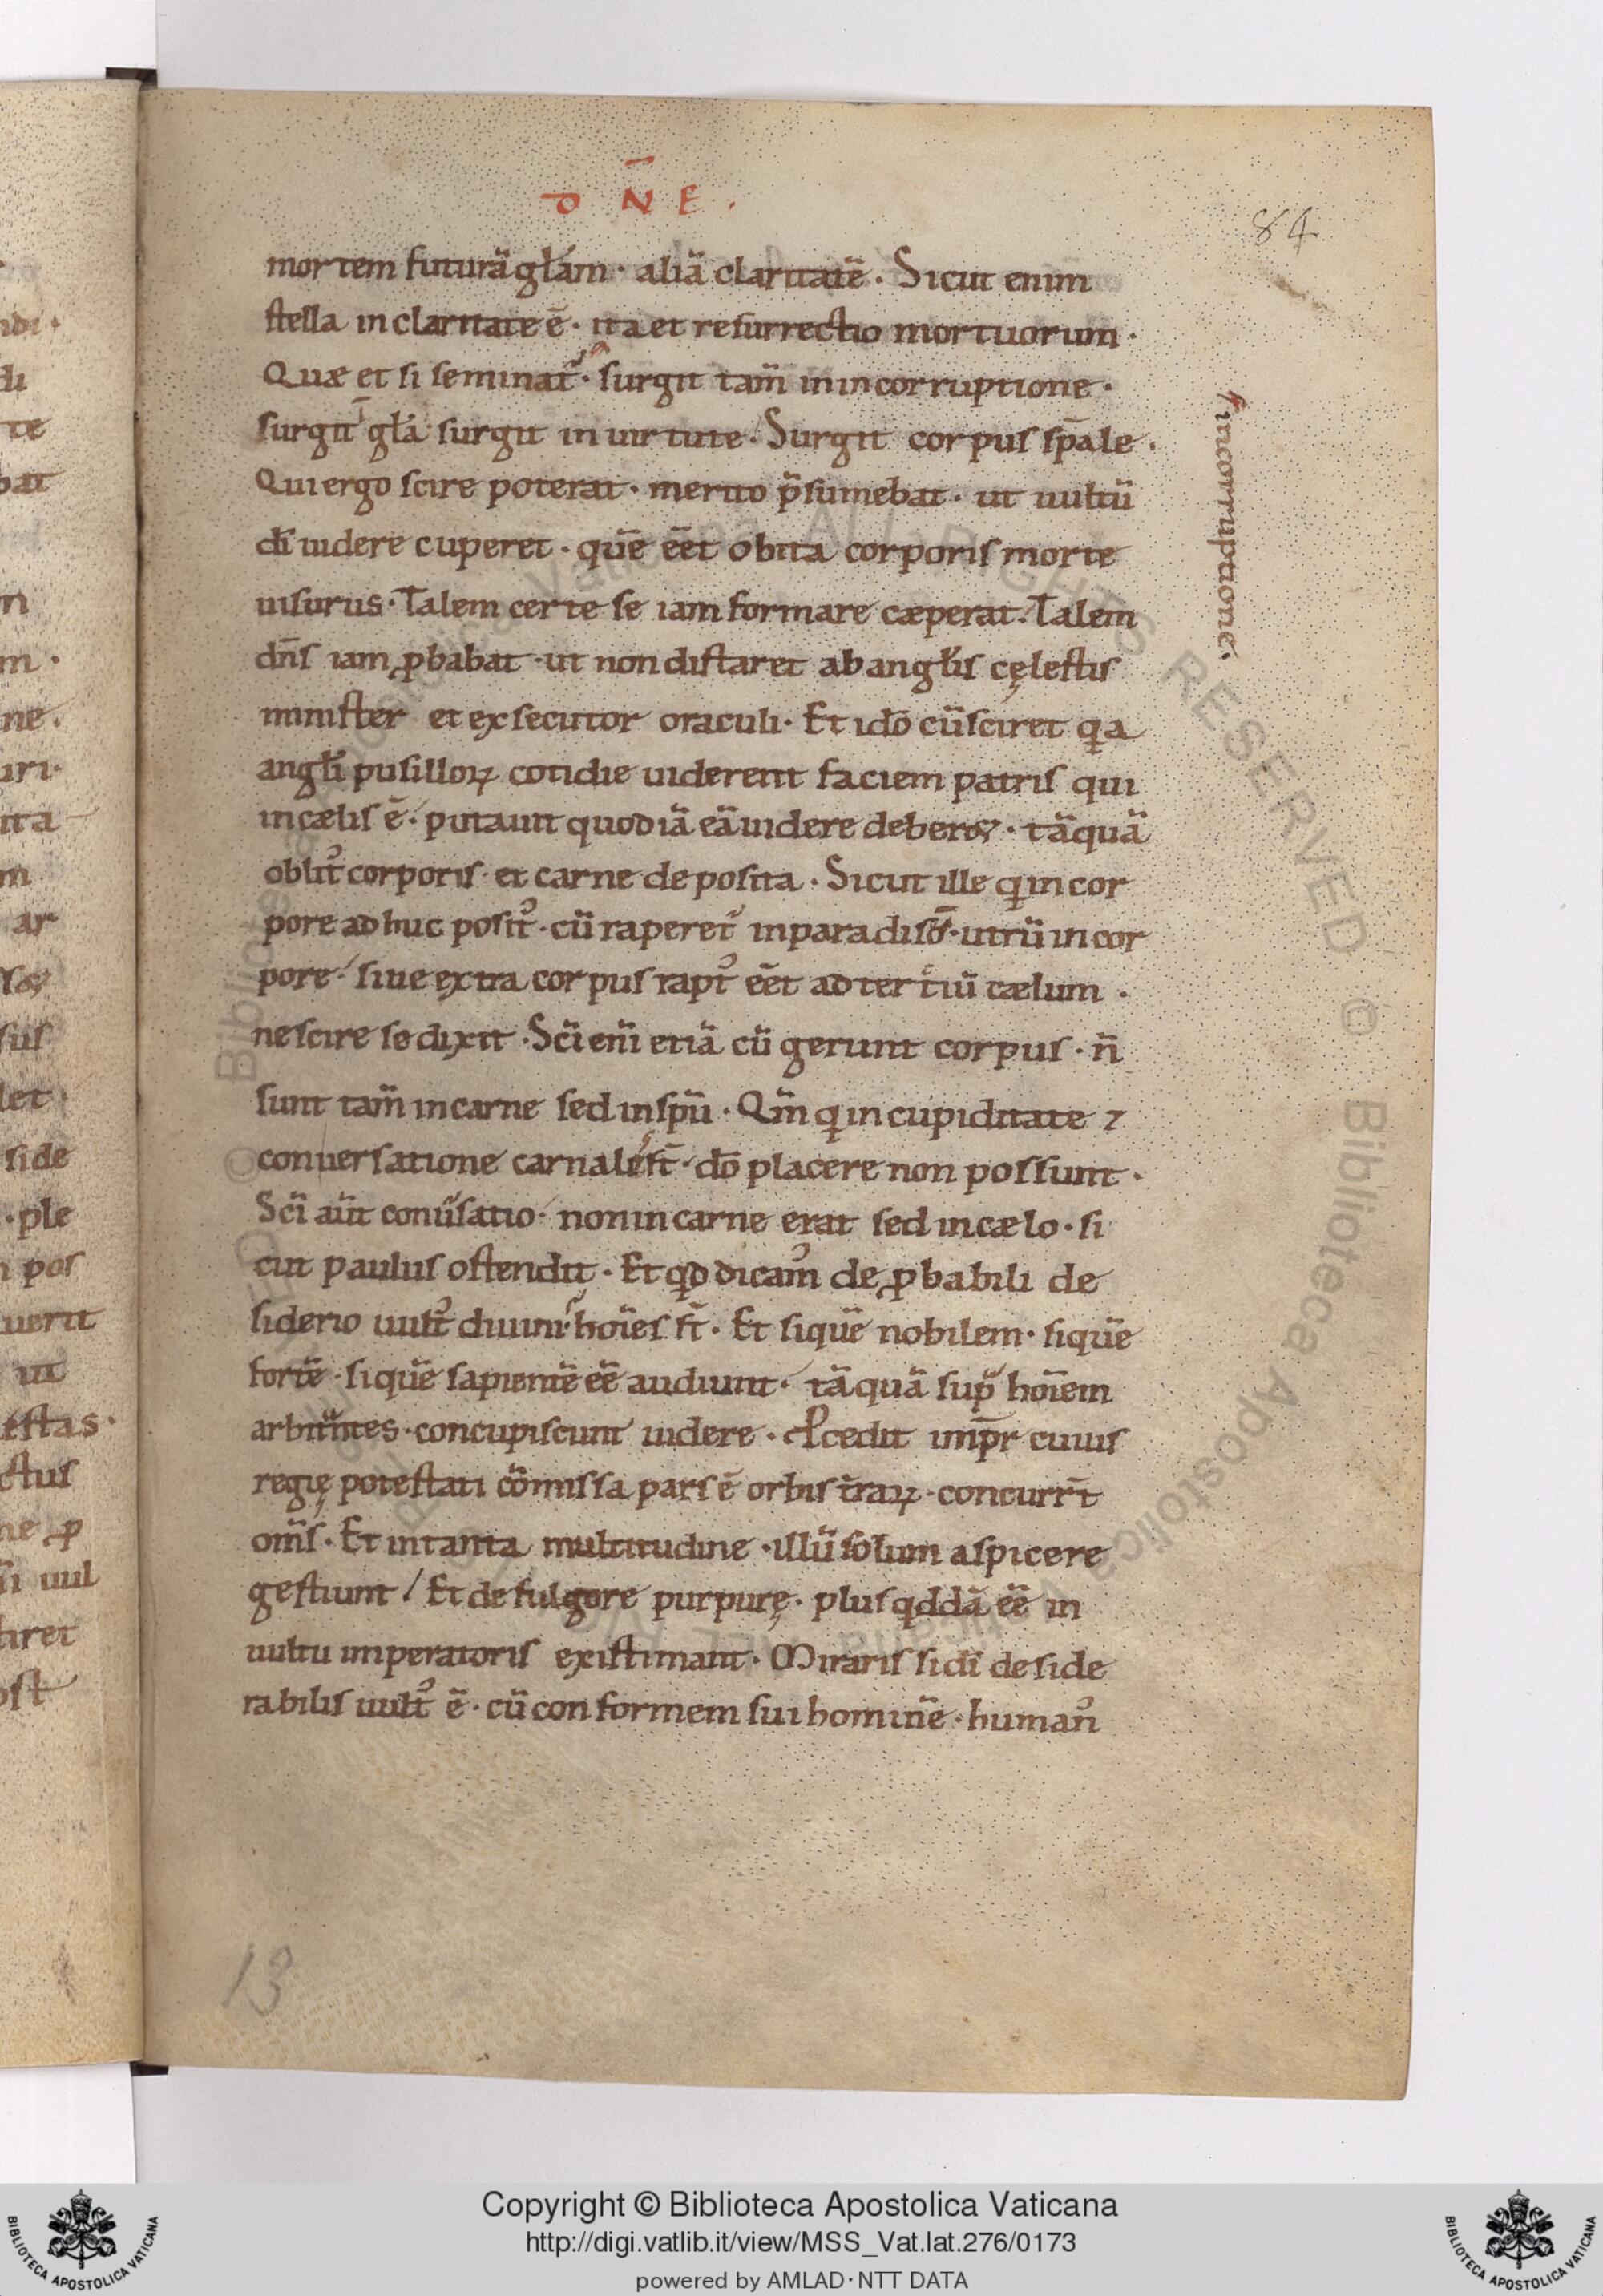 D N̄ E .
84
mortem futurā gl̄am · aliā claritatē . Sicut enim
stella in claritate ē · ita et resurrectio mortuorum ·
Quæ et si seminat᷒ · surgit tam̄ in incorruptione ·
surgit ī gl̄a · surgit in uirtute . Surgit corpus sp̄ale .
Qui ergo scire poterat · merito p̄sumebat · ut uultū
dī uidere cuperet · quē eēt obita corporis morte
uisurus · Talem certe se iam formare cæperat . Talem
dn̄s iam ꝓbabat · ut non distaret ab angl̄is cęlestis
minister et exsecutor oraculi · Et idō cū sciret q̄a
angl̄i pusilloꝝ cotidie uiderent faciem patris qui
in cælis ē · putauit quod iā eā uidere deberet · tāquā
oblit᷒ corporis · et carne deposita . Sicut ille q̄ in cor
pore adhuc posit᷒ · cū raperet᷒ in paradisō · utrū in cor
pore · siue extra corpus rapt᷒ eēt ad tertiū cælum .
nescire se dixit · Sc̄i eni̅ etiā cū gerunt corpus · n̄
sunt tam̄ in carne sed in spū · Qm̄ q̄ in cupiditate ⁊
conuersatione carnales st̄ · dō placere non possunt ·
Sc̄i aūt conūsatio · non in carne erat sed in cælo · si
cut paulus ostendit · Et qd dicam᷒ de ꝓbabili de
siderio uult᷒ diuini · hoīes st̄ · Et si quē nobilem · si quē
fortē · si quē sapientē eē audiunt · tāquā sup̄ hoīem
arbitn̄tes · concupiscunt uidere · Ꝓcedit imp̄r cuius
regię potestati cōmissa pars ē orbis t̄raꝝ · concurr̄t
om̄s · Et in tanta multitudine · illū solum aspicere
gestiunt / Et de fulgore purpurę · plus qddā eē in
uultu imperatoris existimant · Miraris si dī deside
rabilis uult᷒ ē · cū conformem sui hominē · human᷒
incorruptione ·
13
Copyright © Biblioteca Apostolica Vaticana
http://digi.vatlib.it/view/MSS_Vat.lat.276/0173
powered by AMLAD·NTT DATA
BIBLIOTECA APOSTOLICA VATICANA
BIBLIOTECA APOSTOLICA VATICANA